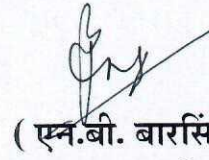 ( एम.बी. बारसिं